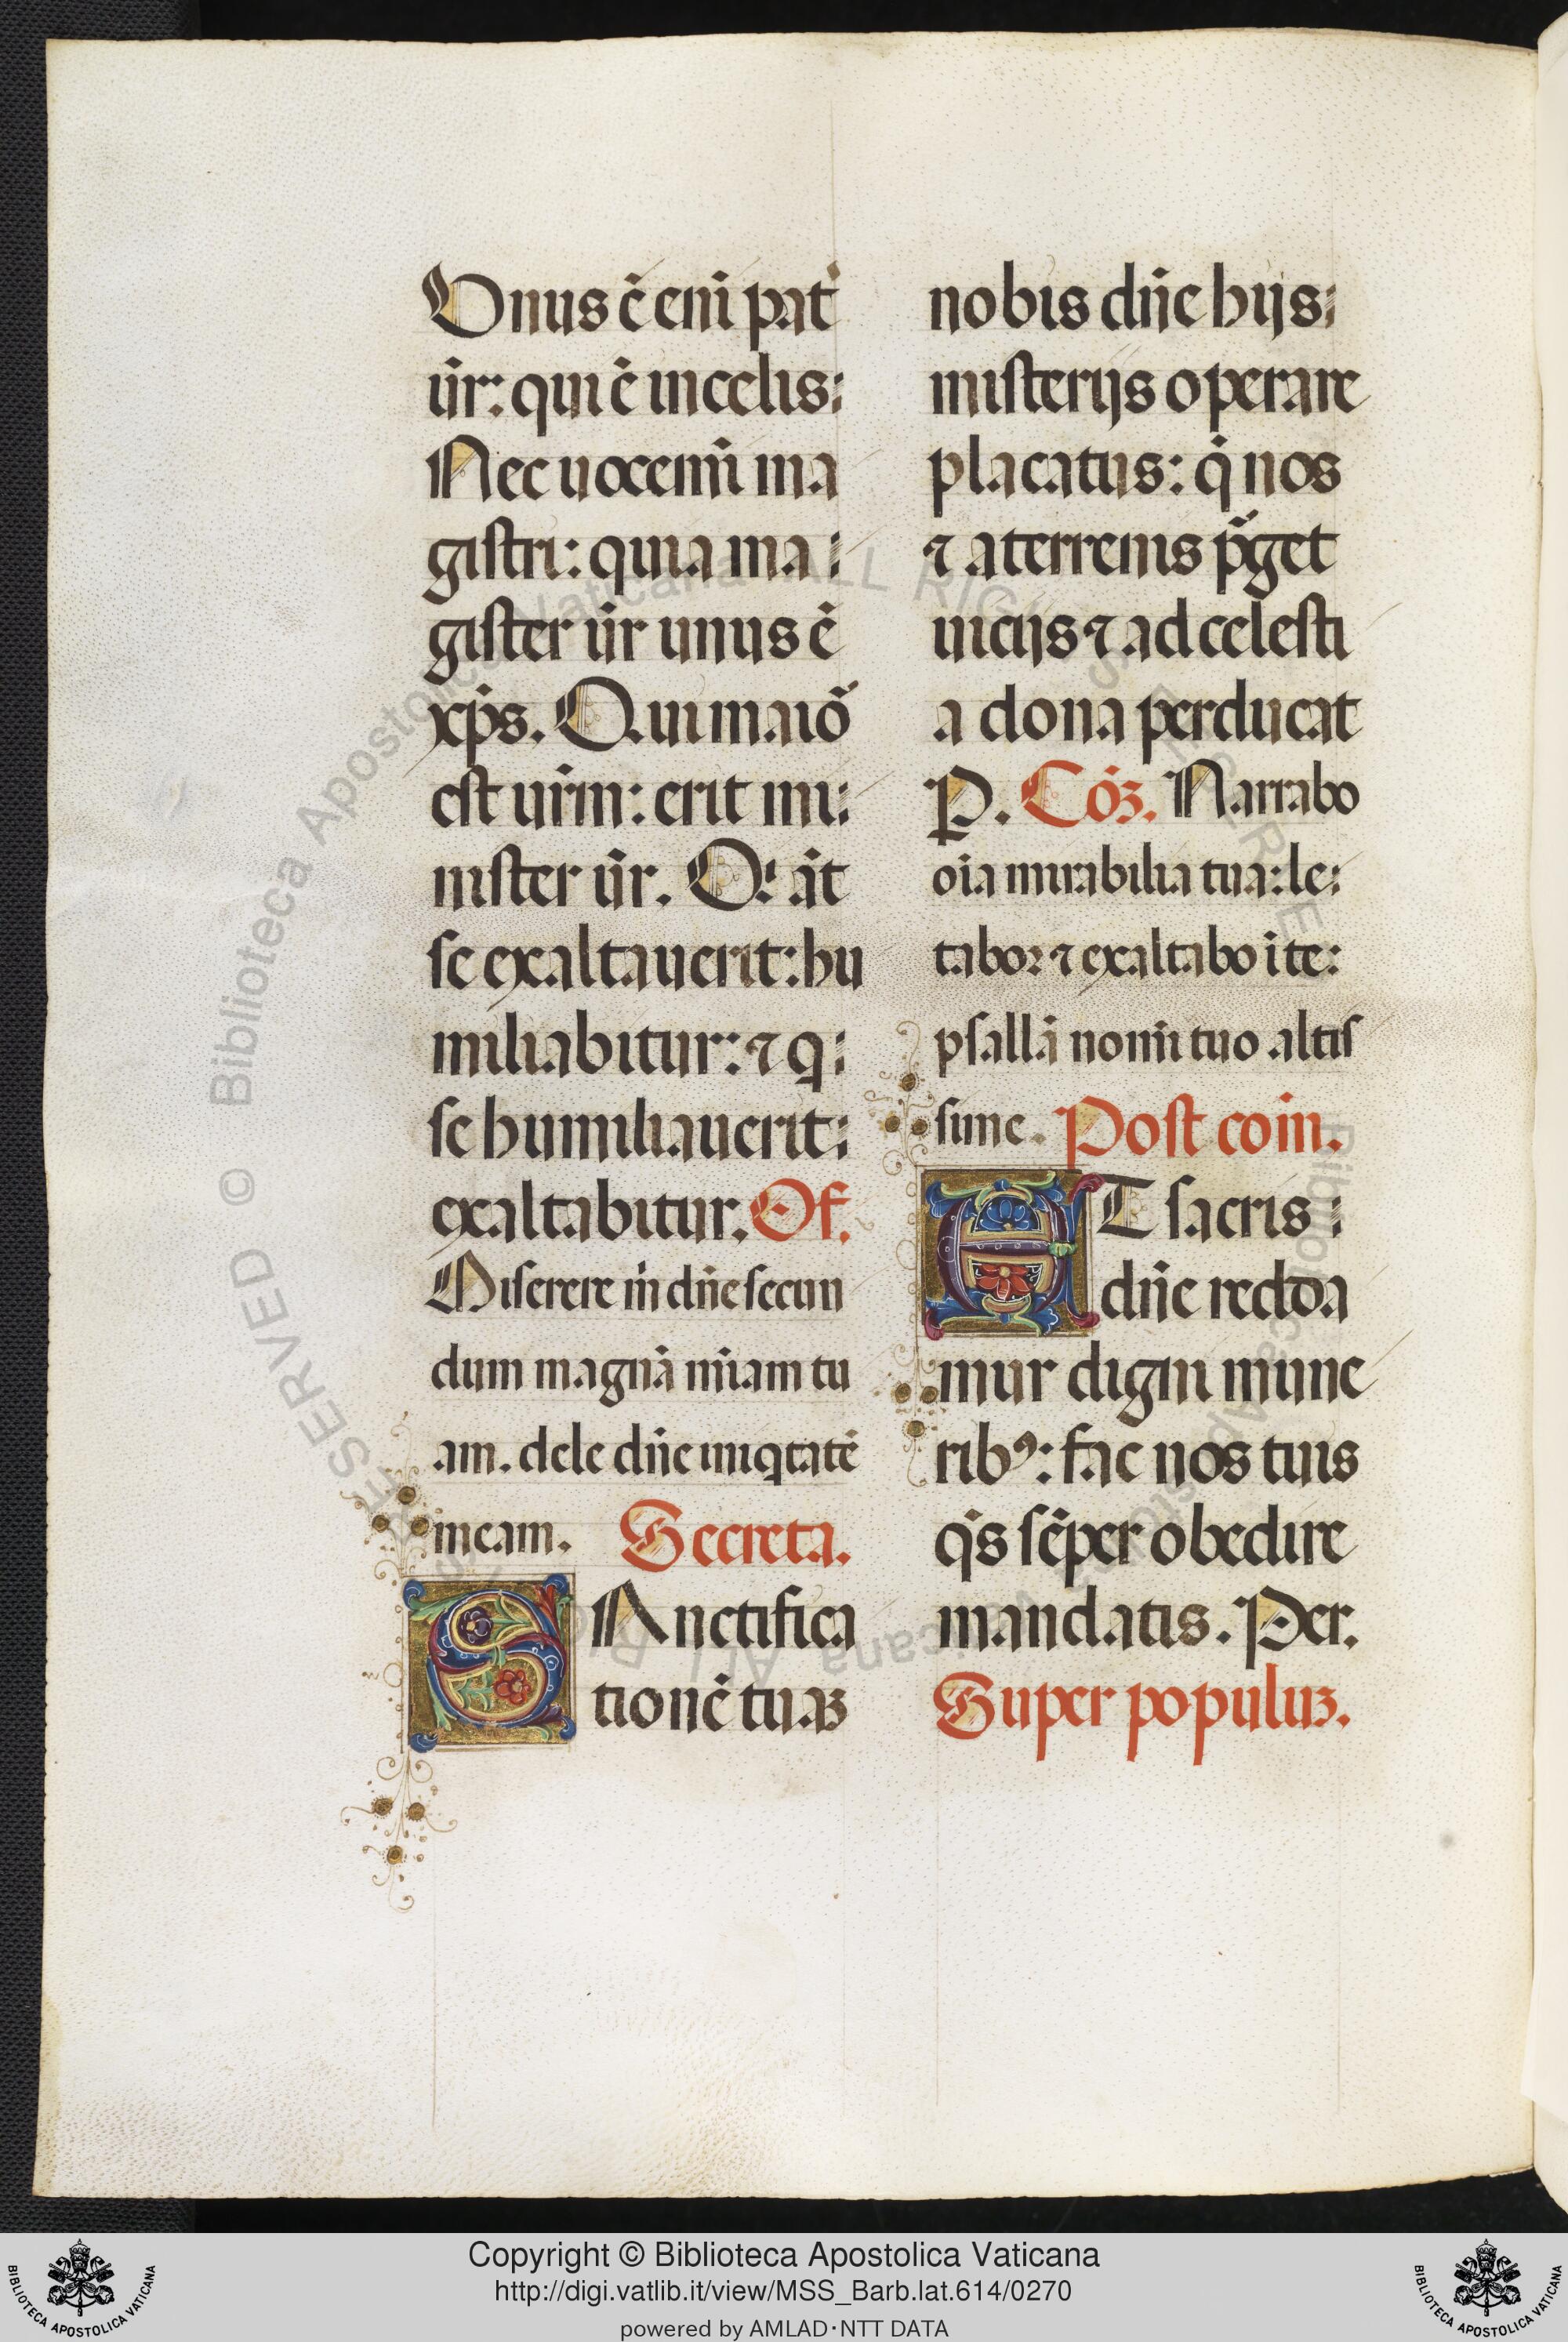 Unus ē eni᷑ pat᷑
ur̄: qui ē in celis:
Nec uocemi᷑ ma
gistri: quia ma:
gister ur̄ unus ē
xp̄s. Qui maior᷑
est ur̄m: erit mi:
nister ur̄. Qi āt
se exaltauerit: hu
miliabitur: ⁊ q:
se humiliauerit:
exaltabitur. Of.
Miserere m̄ dn̄e secun
dum magnā mīam tu
am. dele dn̄e iniqtatē
meam. Secreta.
SAnctifica
tionē tuaʒ
nobis dn̄e hijs:
misterijs operare
placatus: q̇ nos
⁊ a terrenis p᷑get
uicijs ⁊ ad celesti
a dona perducat
P. Cōʒ. Narrabo
oīa mirabilia tua: le:
taboꝛ ⁊ exaltabo ī te:
psallā nomi᷑ tuo altis
sime. Post com̄.
UT sacris:
dn̄e redda
mur digni mune
ribꝰ: fac nos tuis
qs̄ sēper obedire
mandatis. Per.
Super populuʒ.
© Biblioteca Apostolica Vaticana ALL RIGHTS RESERVED
Copyright © Biblioteca Apostolica Vaticana
http://digi.vatlib.it/view/MSS_Barb.lat.614/0270
powered by AMLAD·NTT DATA
BIBLIOTECA APOSTOLICA VATICANA
BIBLIOTECA APOSTOLICA VATICANA